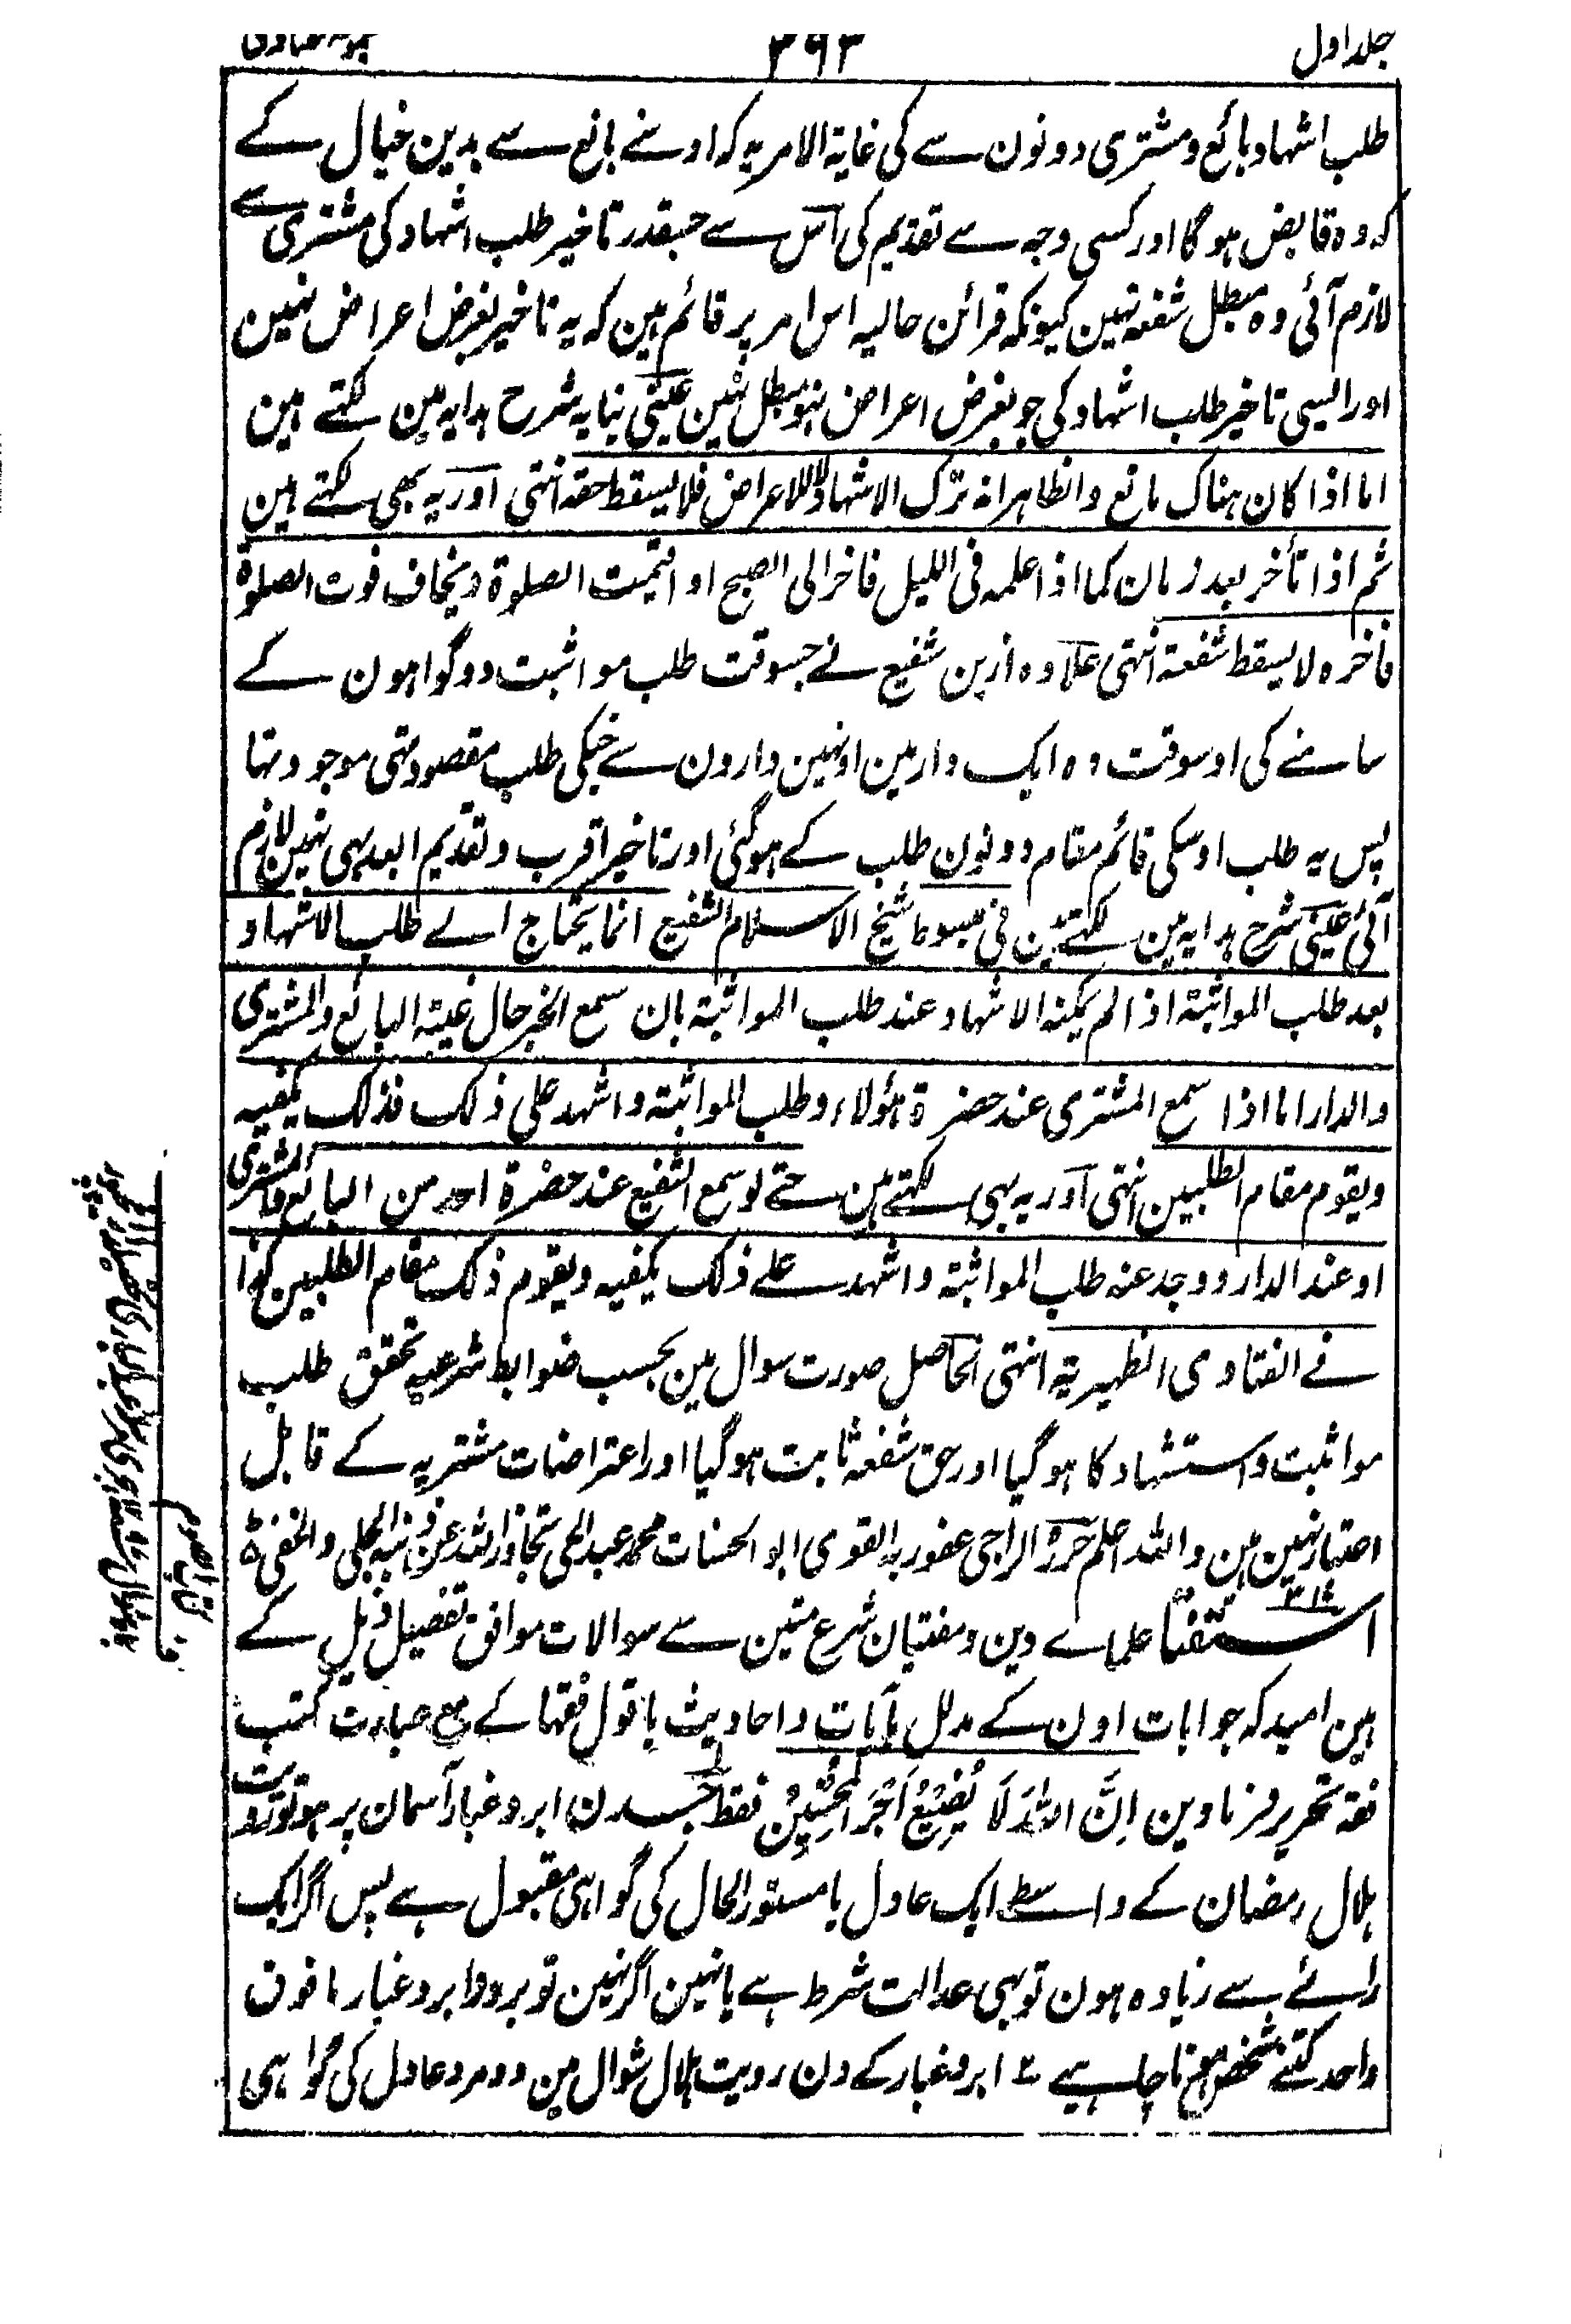 جلد اول
۳۹۳
طلب اشہاد بائع و مشتری دونون سے کی غایۃ الامر یہ کہ اوسنے بائع سے بدین خیال کے
کہ وہ قابض ہوگا اور کسی وجہ سے تقدیم کی اس سے جسقدر تاخیر طلب اشہاد کی مشتری سے
لازم آئی وہ مبطل شفعہ نہین کیونکہ قرائن حالیہ اس امر پر قائم ہین کہ یہ تاخیر بغرض اعراض نہین
اور ایسی تاخیر طلب اشہاد کی جو بغرض اعراض نہو مبطل نہین عینی بنایہ شرح ہدایہ مین لکہتے ہین
اما اذا کان ہناک مانع والظاہر انہ ترک الاشہاد لا للاعراض فلا یسقط حقہ انتہی اور یہ بھی لکہتے ہین
ثم اذا تأخر بعد زمان کما اذا علمہ فی اللیل فاخر الی الصبح او اقیمت الصلوۃ ویخاف فوت الصلوۃ
فاخرہ لا یسقط شفعۃ انتہی علاوہ ازین شفیع نے جسوقت طلب مواثبت دو گواہون کے
سامنے کی اوسوقت وہ ایک دار مین اونہین دارون سے جنکی طلب مقصود تہی موجود تہا
پس یہ طلب اوسکی قائم مقام دونون طلب کے ہوگئی اور تاخیر اقرب و تقدیم ابعد بہی نہین لازم
آئی عینی شرح ہدایہ مین لکہتے ہین فی مبسوط شیخ الاسلام الشفیع انما یحتاج الے طلب الاشہاد
بعد طلب المواثبۃ اذا لم یمکنہ الاشہاد عند طلب المواثبۃ بان سمع الخبر حال غیبۃ البائع والمشتری
والدار اما اذا سمع المشتری عند حضرۃ ہؤلاء وطلب المواثبۃ واشہد علی ذلک فذلک یکفیہ
ویقوم مقام الطلبین انتہی اور یہ بہی لکہتے ہین حتے لو سمع الشفیع عند حضرۃ احد من البائع والمشتری
او عند الدار ووجد عنہ طلب المواثبۃ واشہد علے ذلک یکفیہ ویقوم ذلک مقام الطلبین کذا
فے الفتاوی الظہیریۃ انتہی الحاصل صورت سوال مین بحسب ضوابط شرعیہ تحقق طلب
مواثبت واستشہاد کا ہوگیا اور حق شفعہ ثابت ہوگیا اور اعتراضات مشتریہ کے قابل
اعتبار نہین ہین واللہ اعلم حررہ الراجی عفو ربہ القوی ابو الحسنات محمد عبدالحی تجاوز اللہ عن ذنبہ الجلی والخفی
استفتا علماے دین ومفتیان شرع متین سے سوالات موافق تفصیل ذیل کے
ہین امید کہ جوابات اون کے مدلل بآیات واحادیث یا قول فقہا کے مع عبارت کتب
فقہ تحریر فرماوین اِنَّ اللہَ لَا یُضِیْعُ اَجْرَ الْمُحْسِنِیْنَ فقط جسدن ابر وغبار آسمان پر ہو تو رویت
ہلال رمضان کے واسطے ایک عادل یا مستور الحال کی گواہی مقبول ہے پس اگر ایک
رائے سے زیادہ ہون تو بہی عدالت شرط ہے یا نہین اگر نہین تو بروز ابر وغبار مافوق
واحد کتنے شخص ہونا چاہیے ابر وغبار کے دن رویت ہلال شوال مین دو مرد عادل کی گواہی